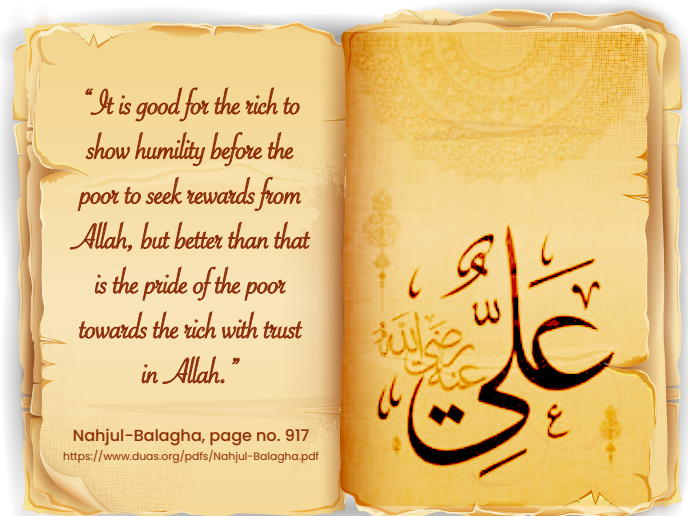 “It is good for the rich to
show humility before the
poor to seek rewards from
Allah, but better than that
is the pride of the poor
towards the rich with trust
in Allah.”
Nahjul-Balagha, page no. 917
https://www.duas.org/pdfs/Nahjul-Balagha.pdf
عَلِيٌّ
رضي الله عنه